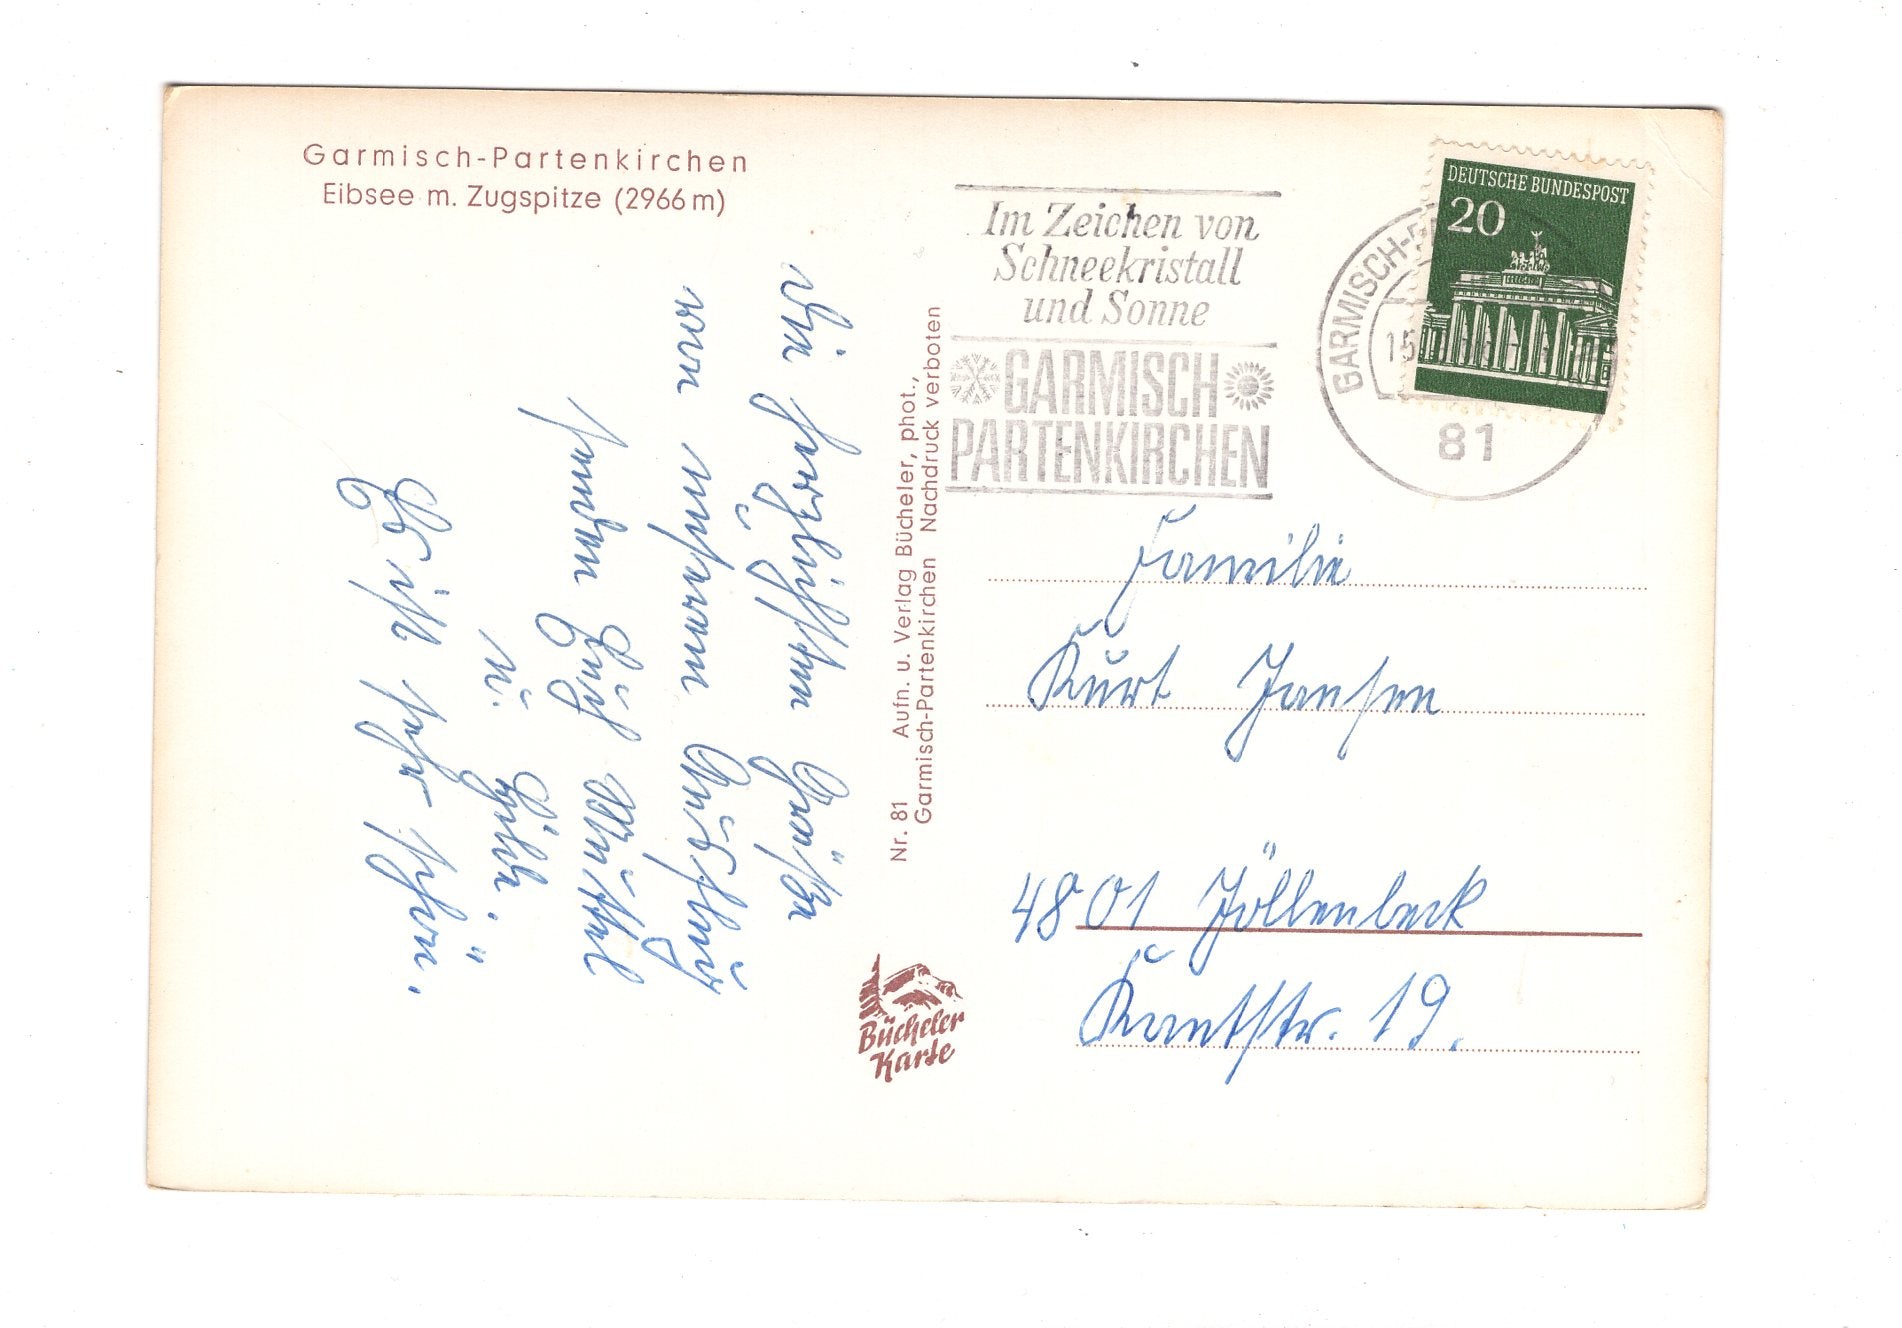 Garmisch-Partenkirchen
Eibsee m. Zugspitze (2966 m)
Die herzlichsten Grüße
von unserem Ausflug
senden Euch
u.
Es ist sehr schön.
Nr. 81 Aufn. u. Verlag Bücheler, phot.,
Garmisch-Partenkirchen Nachdruck verboten
Bücheler
Karte
Im Zeichen von
Schneekristall
und Sonne
GARMISCH
PARTENKIRCHEN
DEUTSCHE BUNDESPOST
20
GARMISCH-P
15
81
Familie
Kurt Jansen
4801 Jöllenbeck
Kantstr. 19.